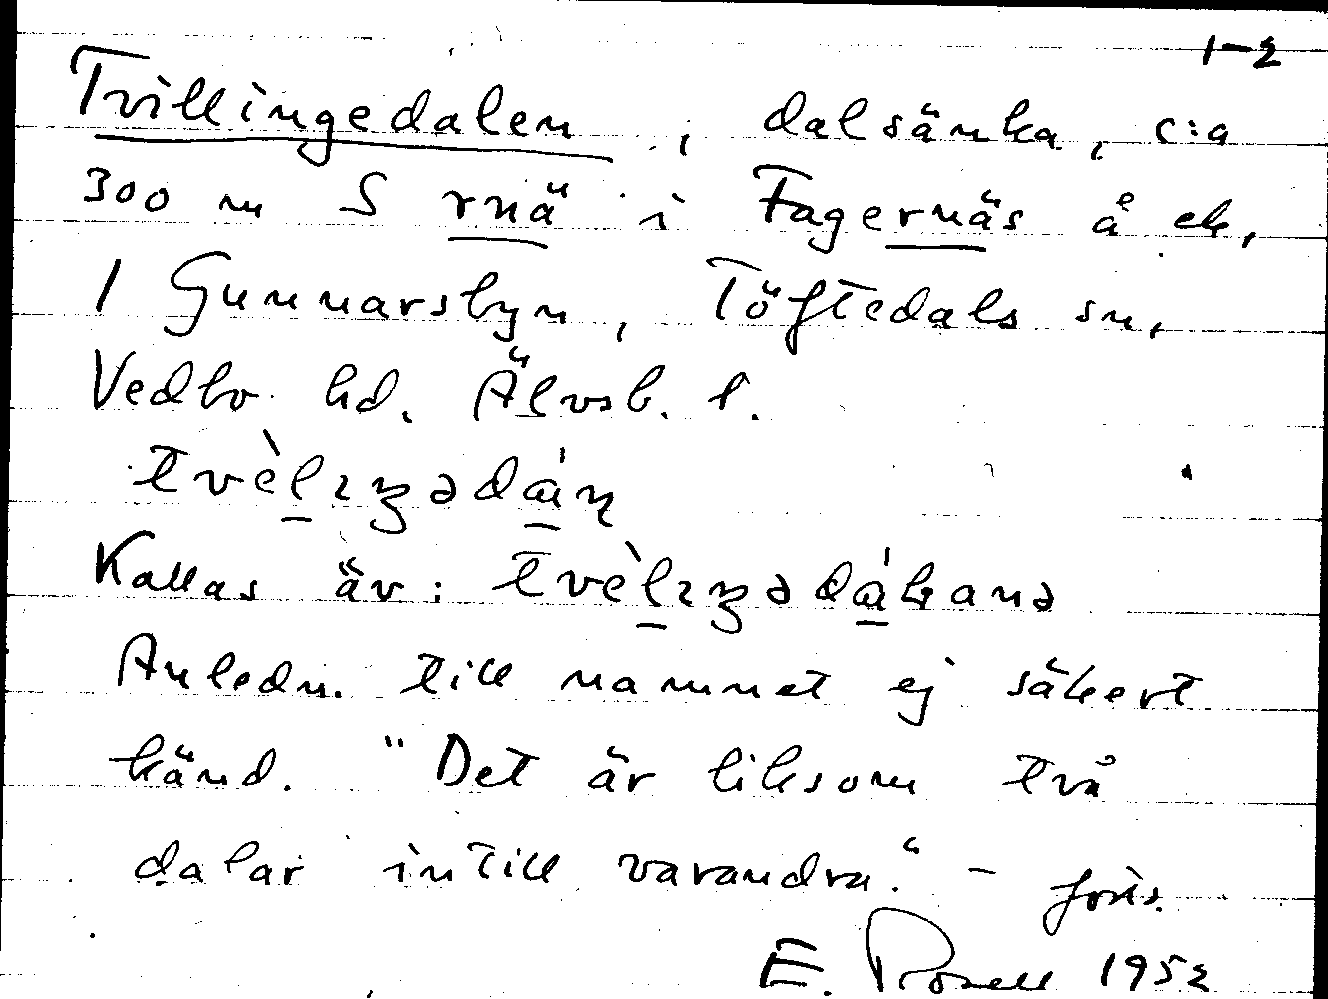 1-2
Tvillingedalen, dalsänka, c:a
300 m S rnä i Fagernäs å ek,
1 Gunnarsbyn, Töftedals sn,
Vedbo hd. Älvsb. l.
tvèlıŋədáṇ
Kallas äv: tvèlıŋədákanə
Anledn. till namnet ej säkert
känd. "Det är liksom två
dalar intill varandra." -
E. Rosell 1952